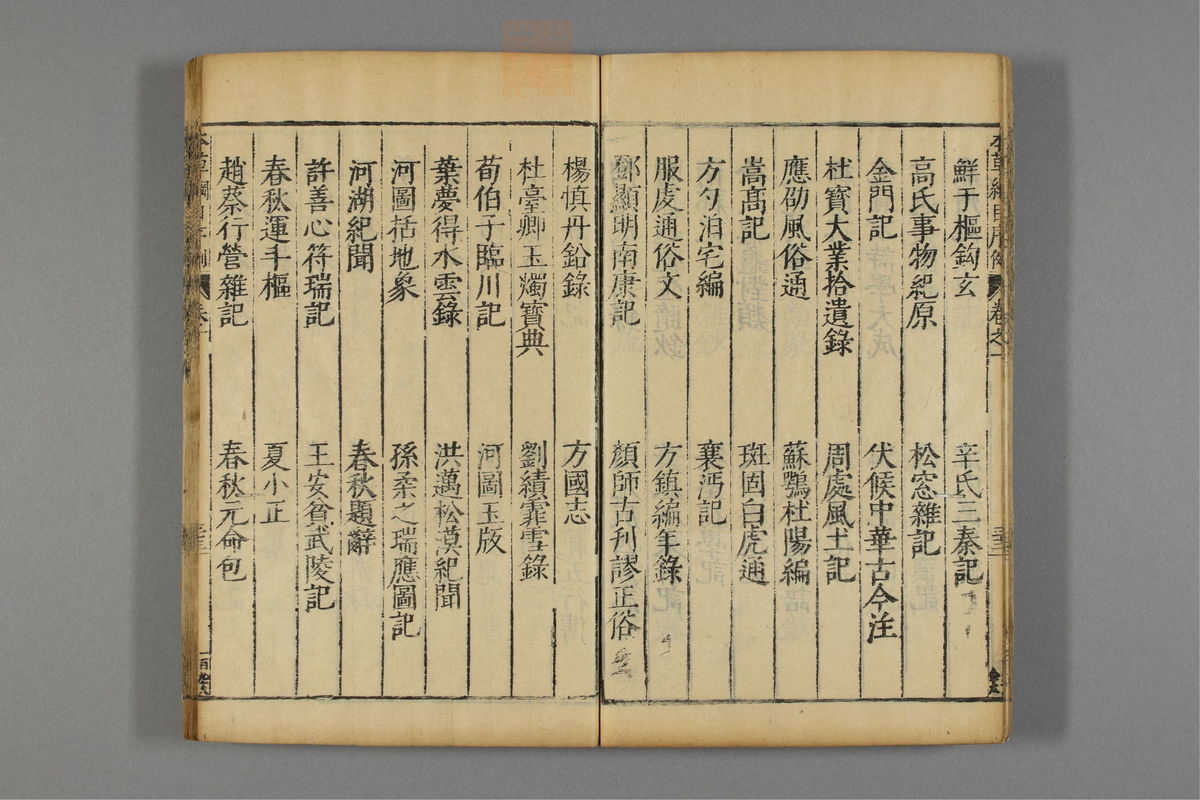 鮮于樞鈎玄　辛氏三秦記
高氏事物紀原　松窓雜記
金門記　伏候中華古今注
杜寳大業拾遺錄　周處風土記
應劭風俗通　蘇鶚杜陽編
嵩高記　班固白虎通
方勺泊宅編　襄沔記
服虔通俗文　方鎮編年錄
鄧顯明南康記　顔師古刋謬正俗
楊慎丹鉛錄　方國志
杜臺卿玉燭寳典　劉績霏雪錄
荀伯子臨川記　河圖玉版
葉夢得水雲錄　洪邁松漠紀聞
河圖括地象　孫柔之瑞應圖記
河湖紀聞　春秋題辭
許善心符瑞記　王安貧武陵記
春秋運斗樞　夏小正
趙蔡行營雜記　春秋元命包